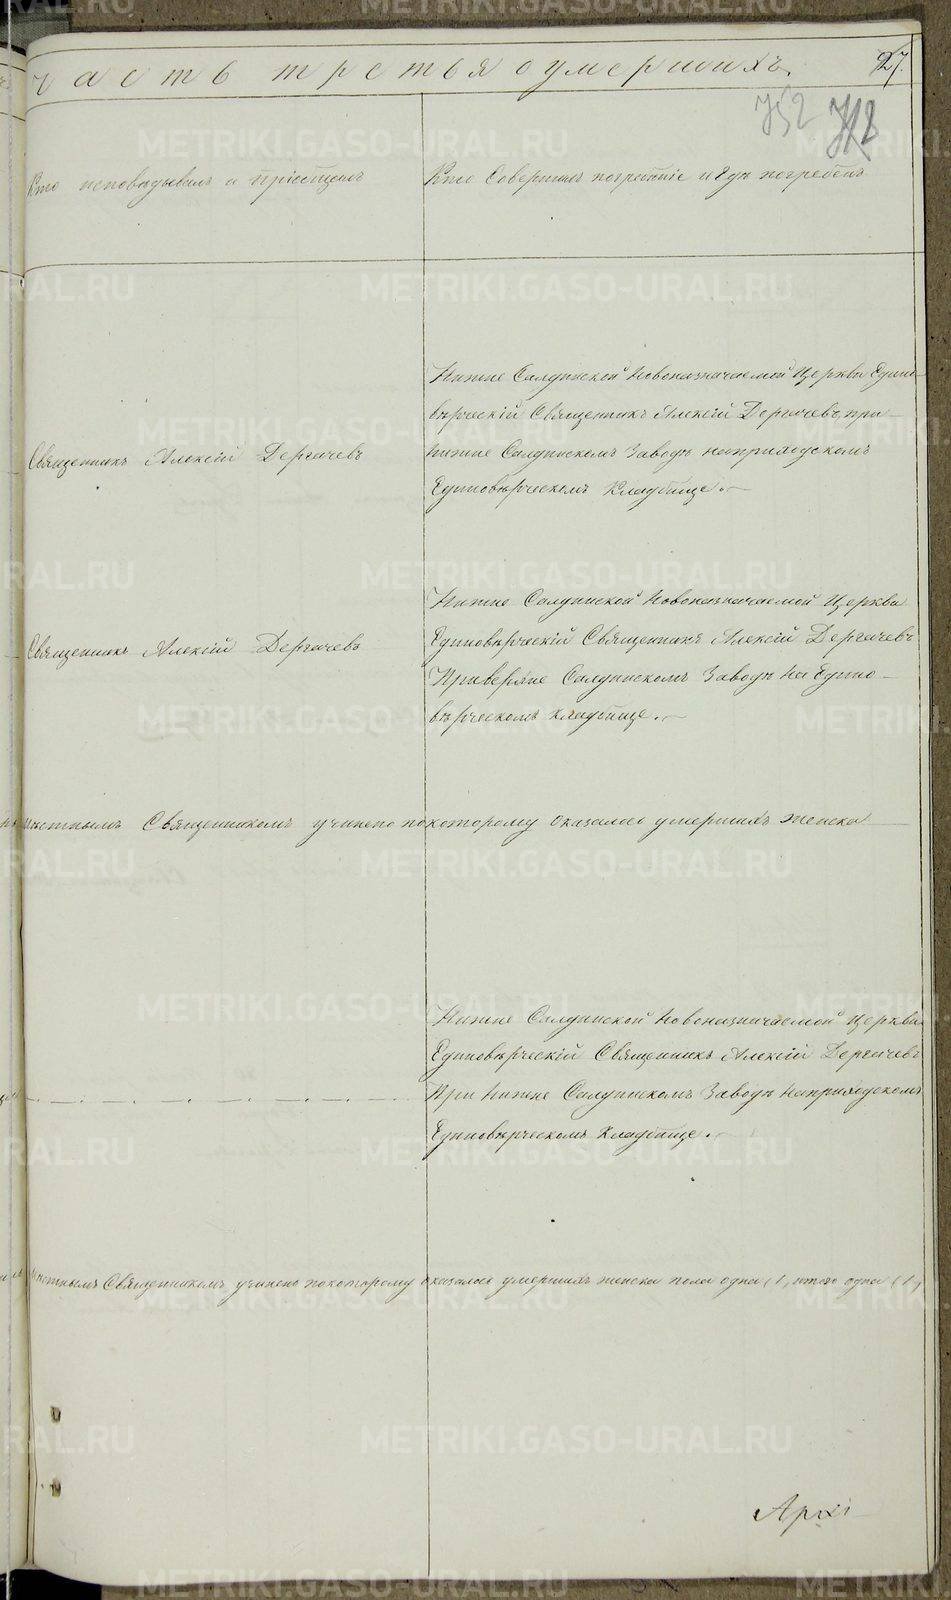 часть третья о умершихъ.
27.
752 712
Кто исповѣдывалъ и пріобщалъ
Кто Совершалъ погребеніе и гдѣ погребенъ
Нижне Салдинской Новоназначаемой Церкви Едино-
вѣрческій Священникъ Алексій Дергачевъ, при
Нижне Салдинскомъ Заводѣ наприходскомъ
Единовѣрческомъ Кладбище.
Священникъ Алексій Дергачевъ
Нижне Салдинской Новоназначаемой Церкви
Единовѣрческій Священникъ Алексій Дергачевъ
При Верхне Салдинскомъ Заводѣ на Едино-
вѣрческомъ кладбище.
Священникъ Алексій Дергачевъ
мѣстнымъ Священникомъ учинено покоторому оказалось умершихъ женска
Нижне Салдинской Новоназначаемой Церкви
Единовѣрческій Священникъ Алексій Дергачевъ
При Нижне Салдинскомъ Заводѣ Наприходскомъ
Единовѣрческомъ Кладбище.
мѣстнымъ Священникомъ учинено покоторому оказалось умершихъ женска пола одна (1, итого одна (1,)
Архі
METRIKI.GASO-URAL.RU